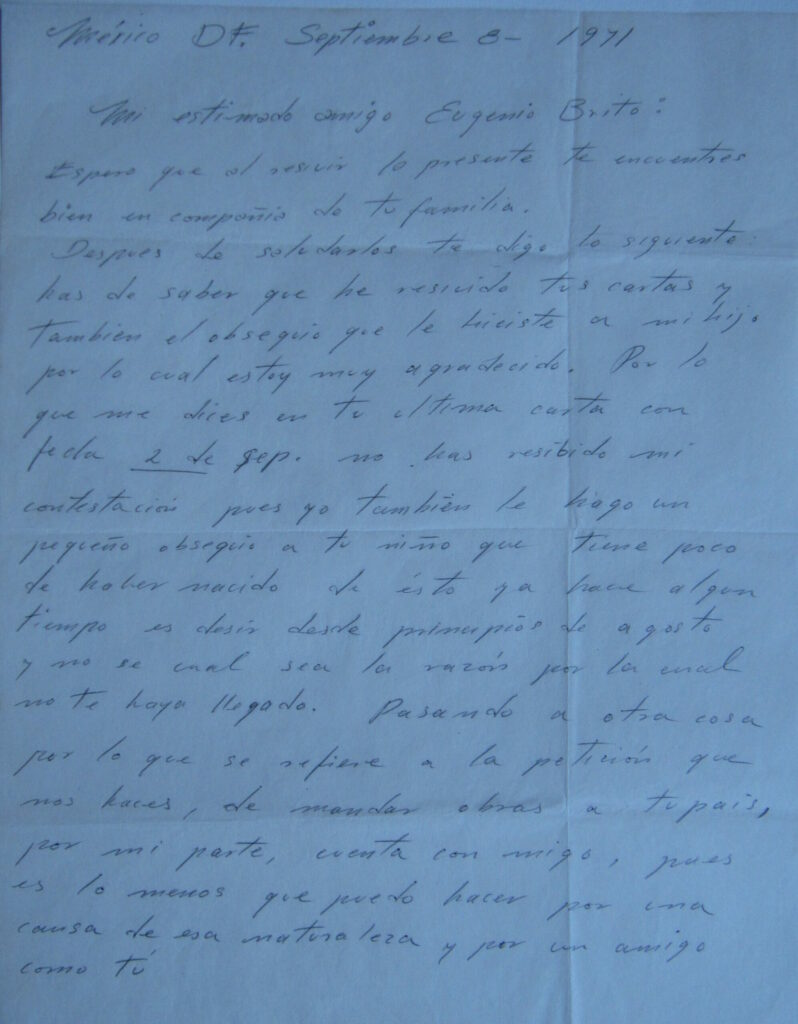 México DF. Septiembre 8- 1971
Mi estimado amigo Eugenio Brito:
Espero que al resivir la presente te encuentres
bien en compañia de tu familia.
Despues de saludarlos te digo lo siguiente:
has de saber que he resivido tus cartas y
tambien el obsequio que le hiciste a mi hijo
por lo cual estoy muy agradecido. Por lo
que me dices en tu ultima carta con
fecha 2 de Sep. no has resibido mi
contestación pues yo también le hago un
pequeño obsequio a tu niño que tiene poco
de haber nacido de ésto ya hace algun
tiempo es desir desde principios de agosto
y no se cual sea la razón por la cual
no te haya llegado. Pasando a otra cosa
por lo que se refiere a la petición que
nos haces, de mandar obras a tu pais,
por mi parte, cuenta con migo, pues
es lo menos que puedo hacer por una
causa de esa naturaleza y por un amigo
como tú